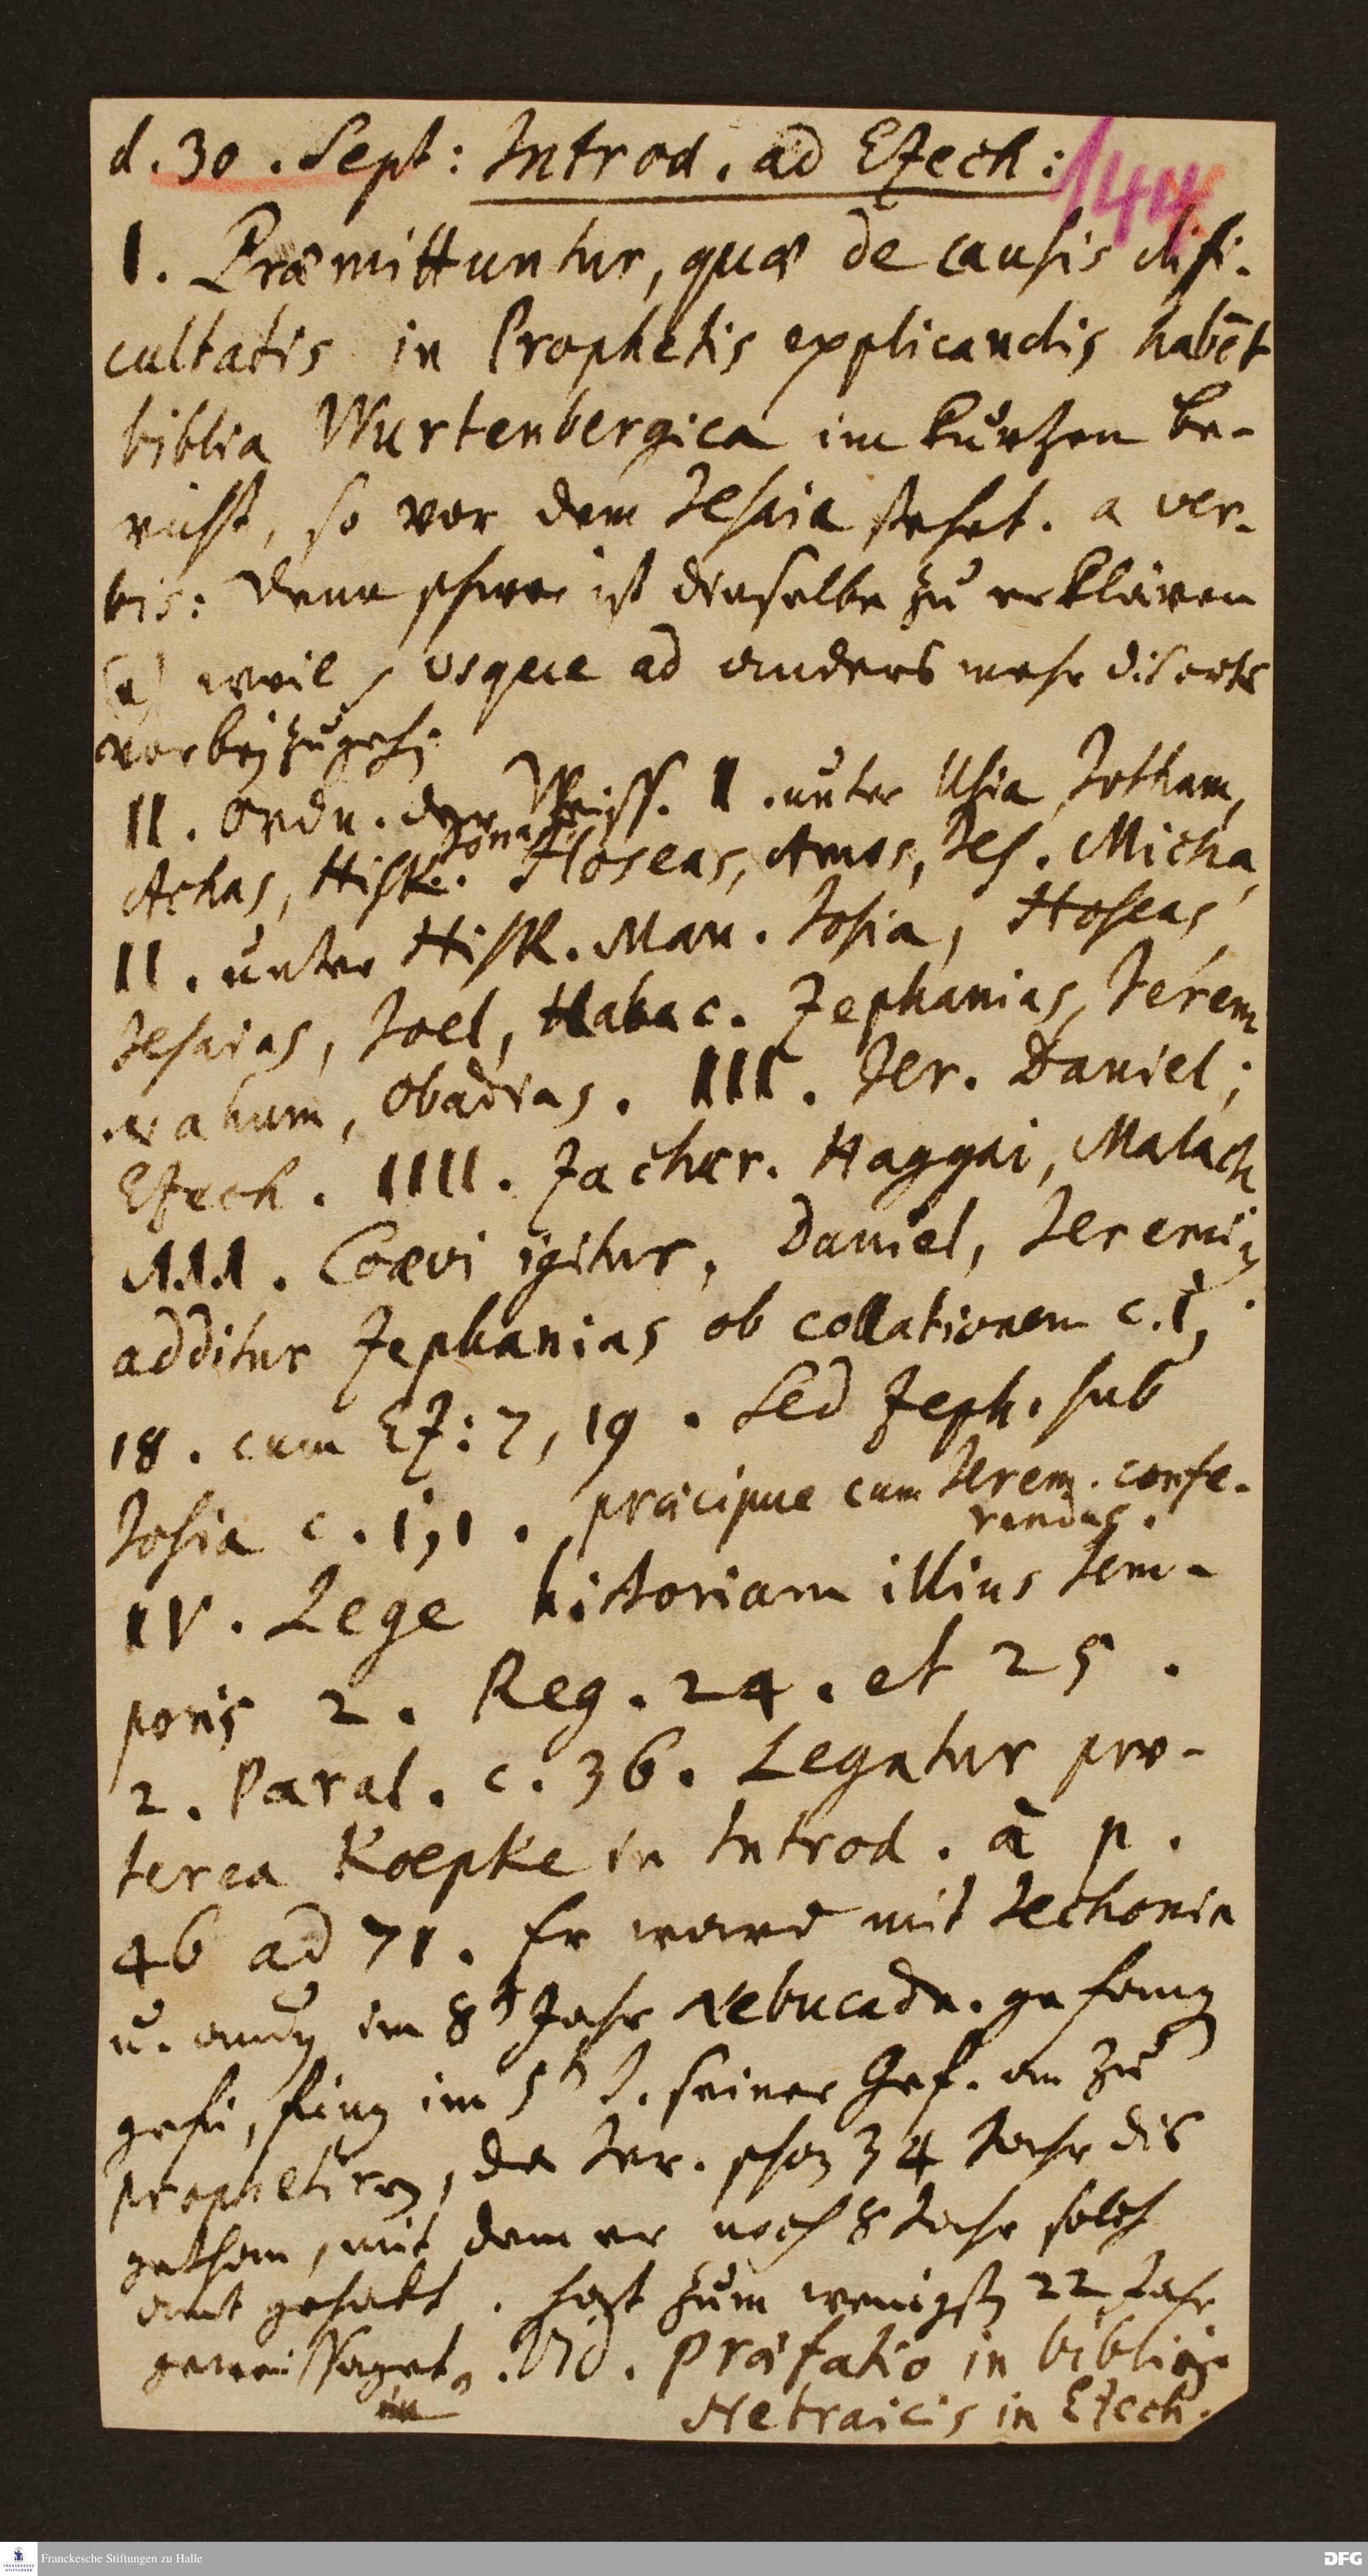 d. 30. Sept: Introd. ad Ezech: 144
I. Præmittuntur, quæ de causis difi-
cultatis in Prophetis explicandis habēt
biblia Wurtenbergica im kurtzen be-
richt, so vor dem Jesaia stehet. a ver-
bis: denn schwer ist dieselbe zu erklären
(a) weil, usque ad anders mehr dis orts
vorbeyzugehē
II. Ordn. der Weiss. I. unter Usia, Jotham,
Jona
Achas, Hisk. Hoseas, Amos, Jes. Micha,
II. unter Hisk. Man. Josia, Hoseas,
Jesaias, Joel, Habac. Zephanias, Jerem
Nahum, Obadias. III. Jer. Daniel;
Ezech. IIII. Zachar. Haggai, Malach
III. Coævi igitur, Daniel, Jeremi
additur Zephanias ob collationem c. 1,
18. cum Ez: 7, 19. Sed Zeph. sub
Josia c. 1, 1. præcipue cum Jerem. confe-
rendus.
IV. Lege historiam illius tem-
poris 2. Reg. 24. et 25.
2. Paral. c. 36. Legatur præ-
terea Koepke in Introd. à p.
46 ad 71. Er ward mit Jechonia
u. andn im 8t Jahr Nebucadn. gefang
gefü, fing im 5t J. seiner Gef. an zu
prophetiren, da Jer. schon 34 Jahr dis
gethan, mit dem er noch 8 Jahr solch
amt gehabt. hast zum wenigsten 22 Jahr
geweissaget. Vid. Præfatio in bibliis
in Hebraicis in Ezech.
Franckesche Stiftungen zu Halle
DFG